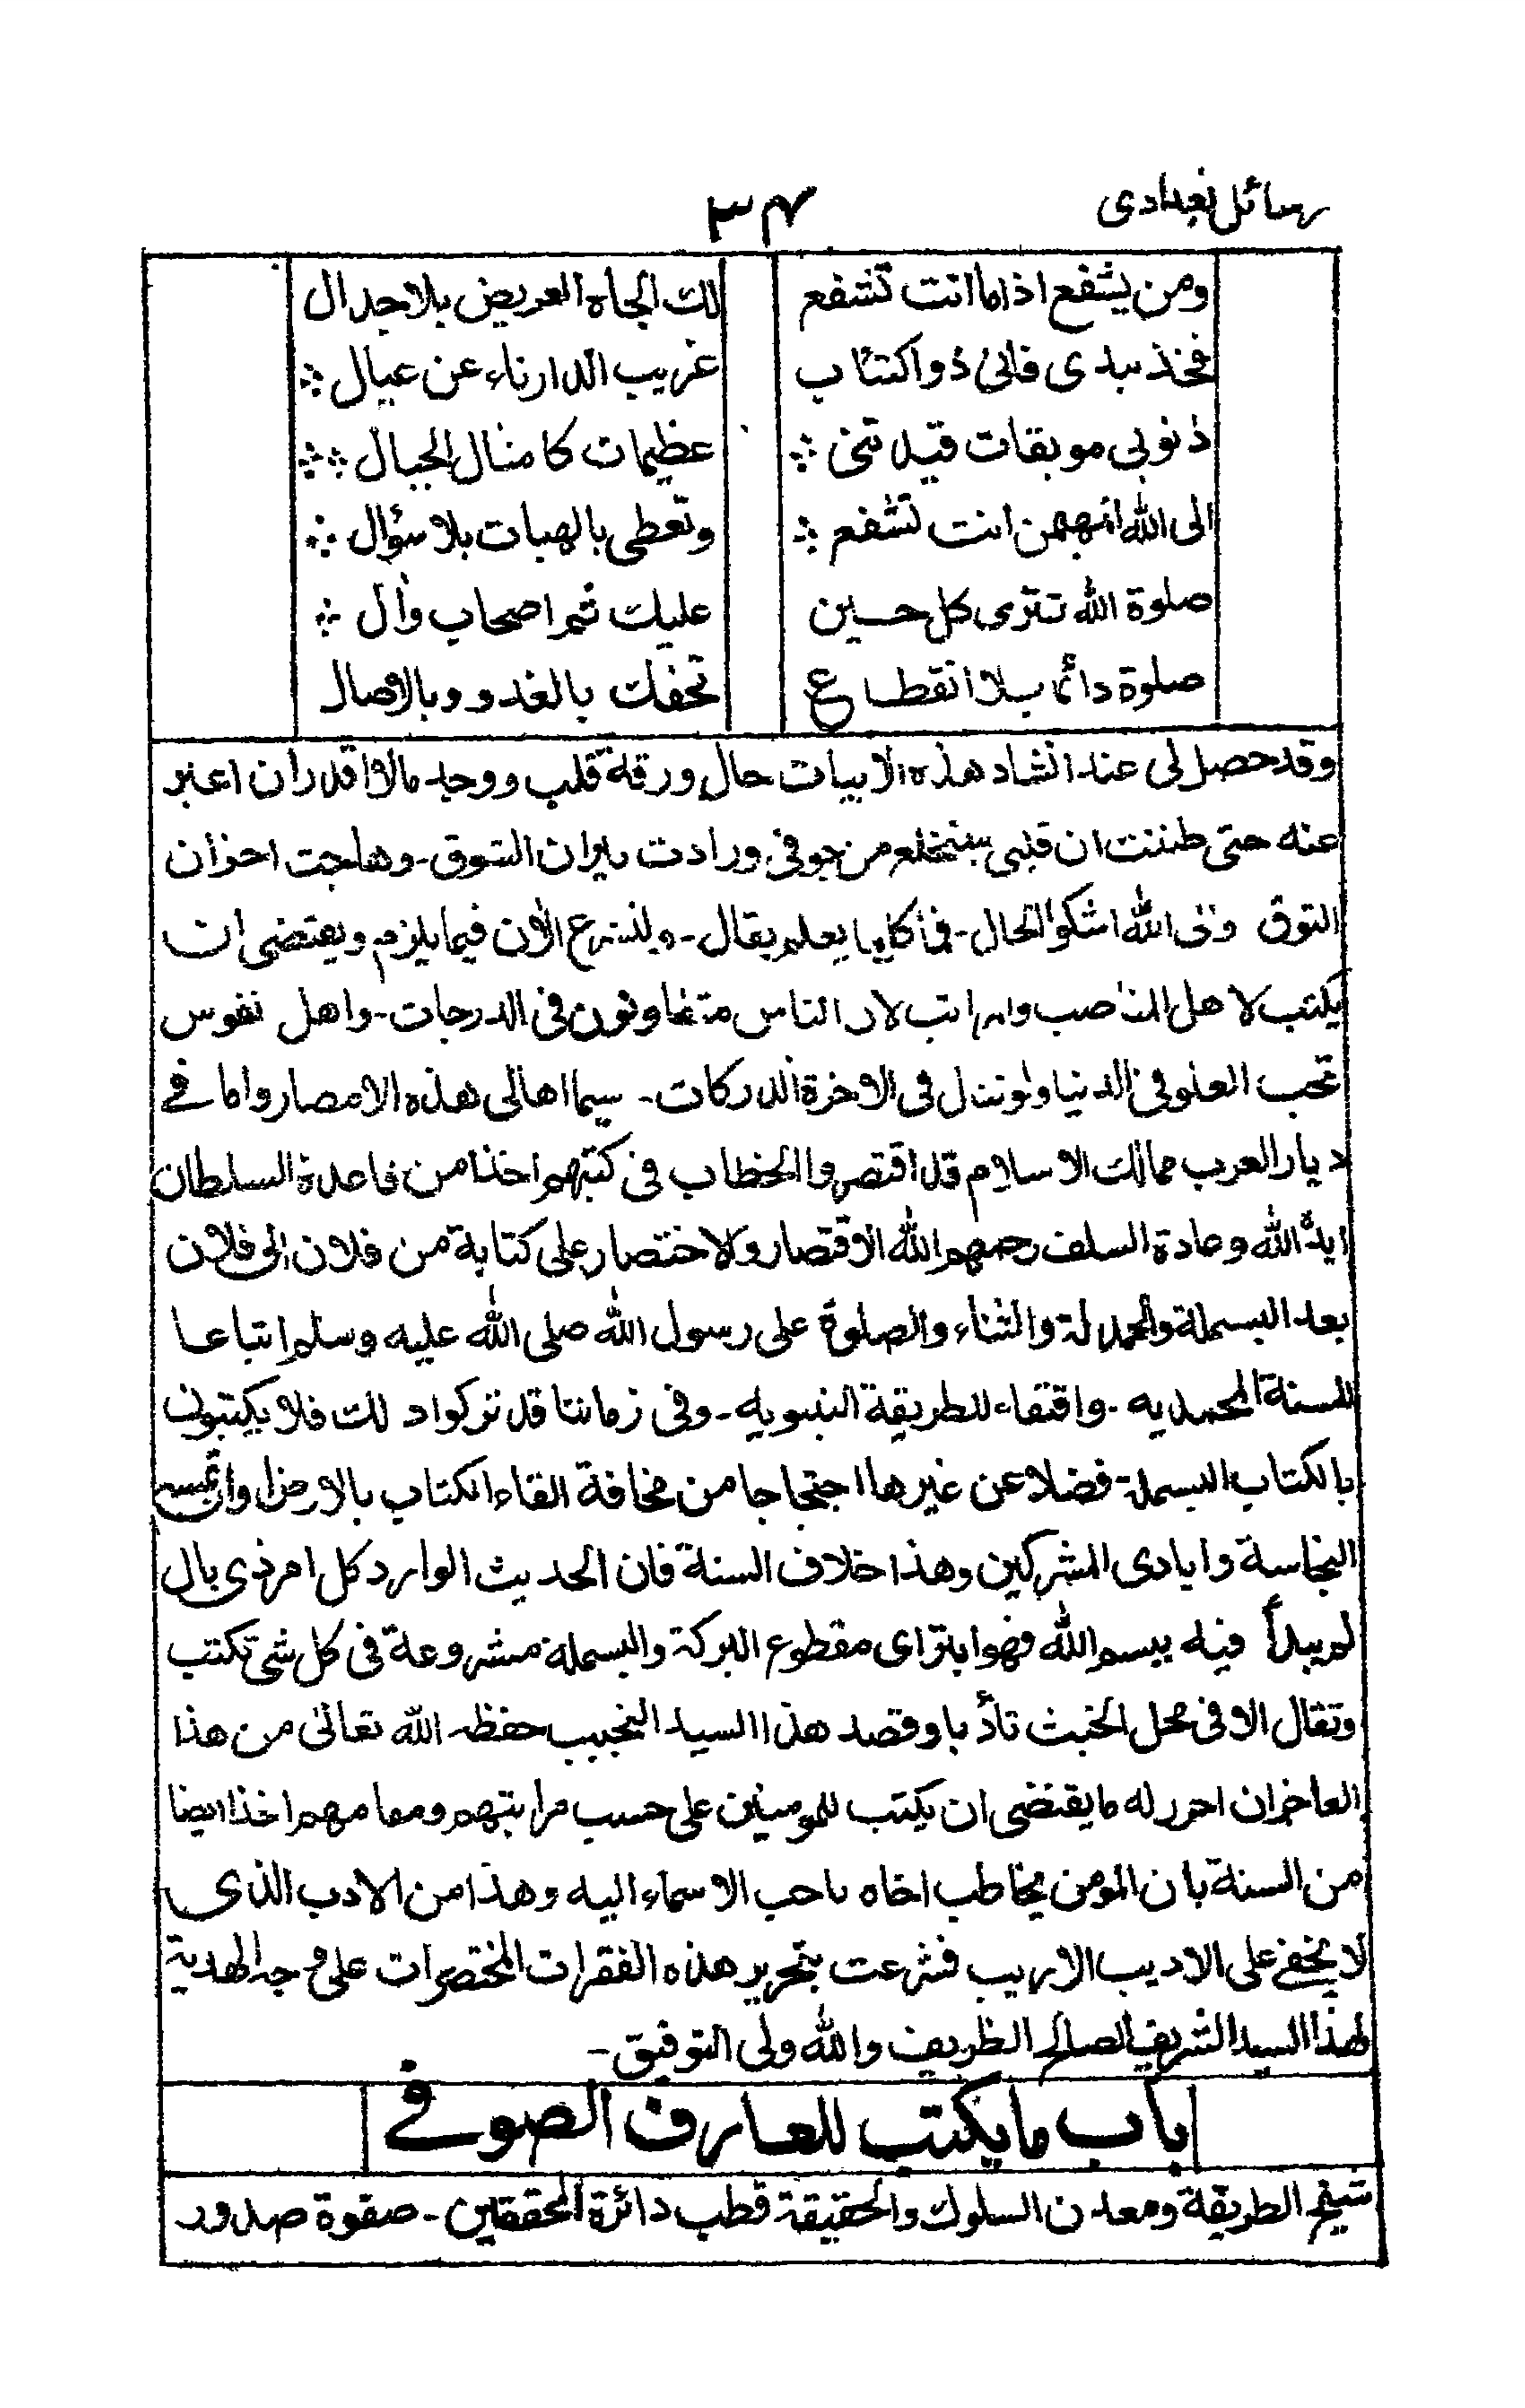 رسائل بغدادی
۳۴
ومن يشفع اذاما انت تشفع لك الجاه العريض بلا جدال
فخذ بيدى فانى ذو اكتئاب غريب الدار ناء عن عيال
ذنوبى موبقات قيدتنى عظيمات كامثال الجبال
الى الله انت تشفع وتعطى بالهبات بلا سؤال
صلوة الله تترى كل حين عليك ثم اصحاب وآل
صلوة دائما بلا انقطاع تحفك بالغدو وبالاصال
وقد حصل لى عند انشاد هذه الابيات حال ورقة قلب ووجد مالا اقدر ان اعبر
عنه حتى ظننت ان قلبى سينخلع من جوفى وزادت نيران الشوق ـ وهاجت احزان
التوق والى الله اشكو الحال ـ فما كلما يعلم يقال ـ ولنشرع الآن فيما يلزم ويقتضى ان
يكتب لاهل المناصب والمراتب لان الناس متفاوتون فى الدرجات ـ واهل نفوس
تحب العلو فى الدنيا ولو تنزل فى الاخرة الدركات ـ سيما اهالى هذه الامصار واما فى
ديار العرب ممالك الاسلام قد اقتصروا الخطاب فى كتبهم اخذا من قاعدة السلطان
ايده الله وعادة السلف رحمهم الله الاقتصار والاختصار على كتابة من فلان الى فلان
بعد البسملة والحمدلة والثناء والصلوة على رسول الله صلى الله عليه وسلم اتباعا
للسنة المحمديه ـ واقتفاء للطريقة النبويه ـ وفى زماننا قد تركوا ذلك فلا يكتبون
بالكتاب البسملة فضلا عن غيرها احتجاجا من مخافة القاء الكتاب بالارض او ان تمسه
النجاسة وايادى المشركين وهذا خلاف السنة فان الحديث الوارد كل امر ذى بال
لم يبدأ فيه ببسم الله فهو ابتر اى مقطوع البركة والبسملة مشروعة فى كل شى تكتب
وتقال الا فى محل الخبث تأدبا وقصد هذا السيد النجيب حفظه الله تعالى من هذا
العاجز ان احرر له ما يقتضى ان يكتب للمومنين على حسب مراتبهم ومقامهم اخذا ايضا
من السنة بان المومن يخاطب اخاه باحب الاسماء اليه وهذا من الادب الذى
لا يخفى على الاديب الاريب فشرعت بتحرير هذه الفقرات المختصرات على وجه الهدية
لهذا السيد الشريف الصالح الظريف والله ولى التوفيق ـ
باب ما يكتب للعارف الصوفى
شيخ الطريقة ومعدن السلوك والحقيقة قطب دائرة المحققين ـ صفوة صدور